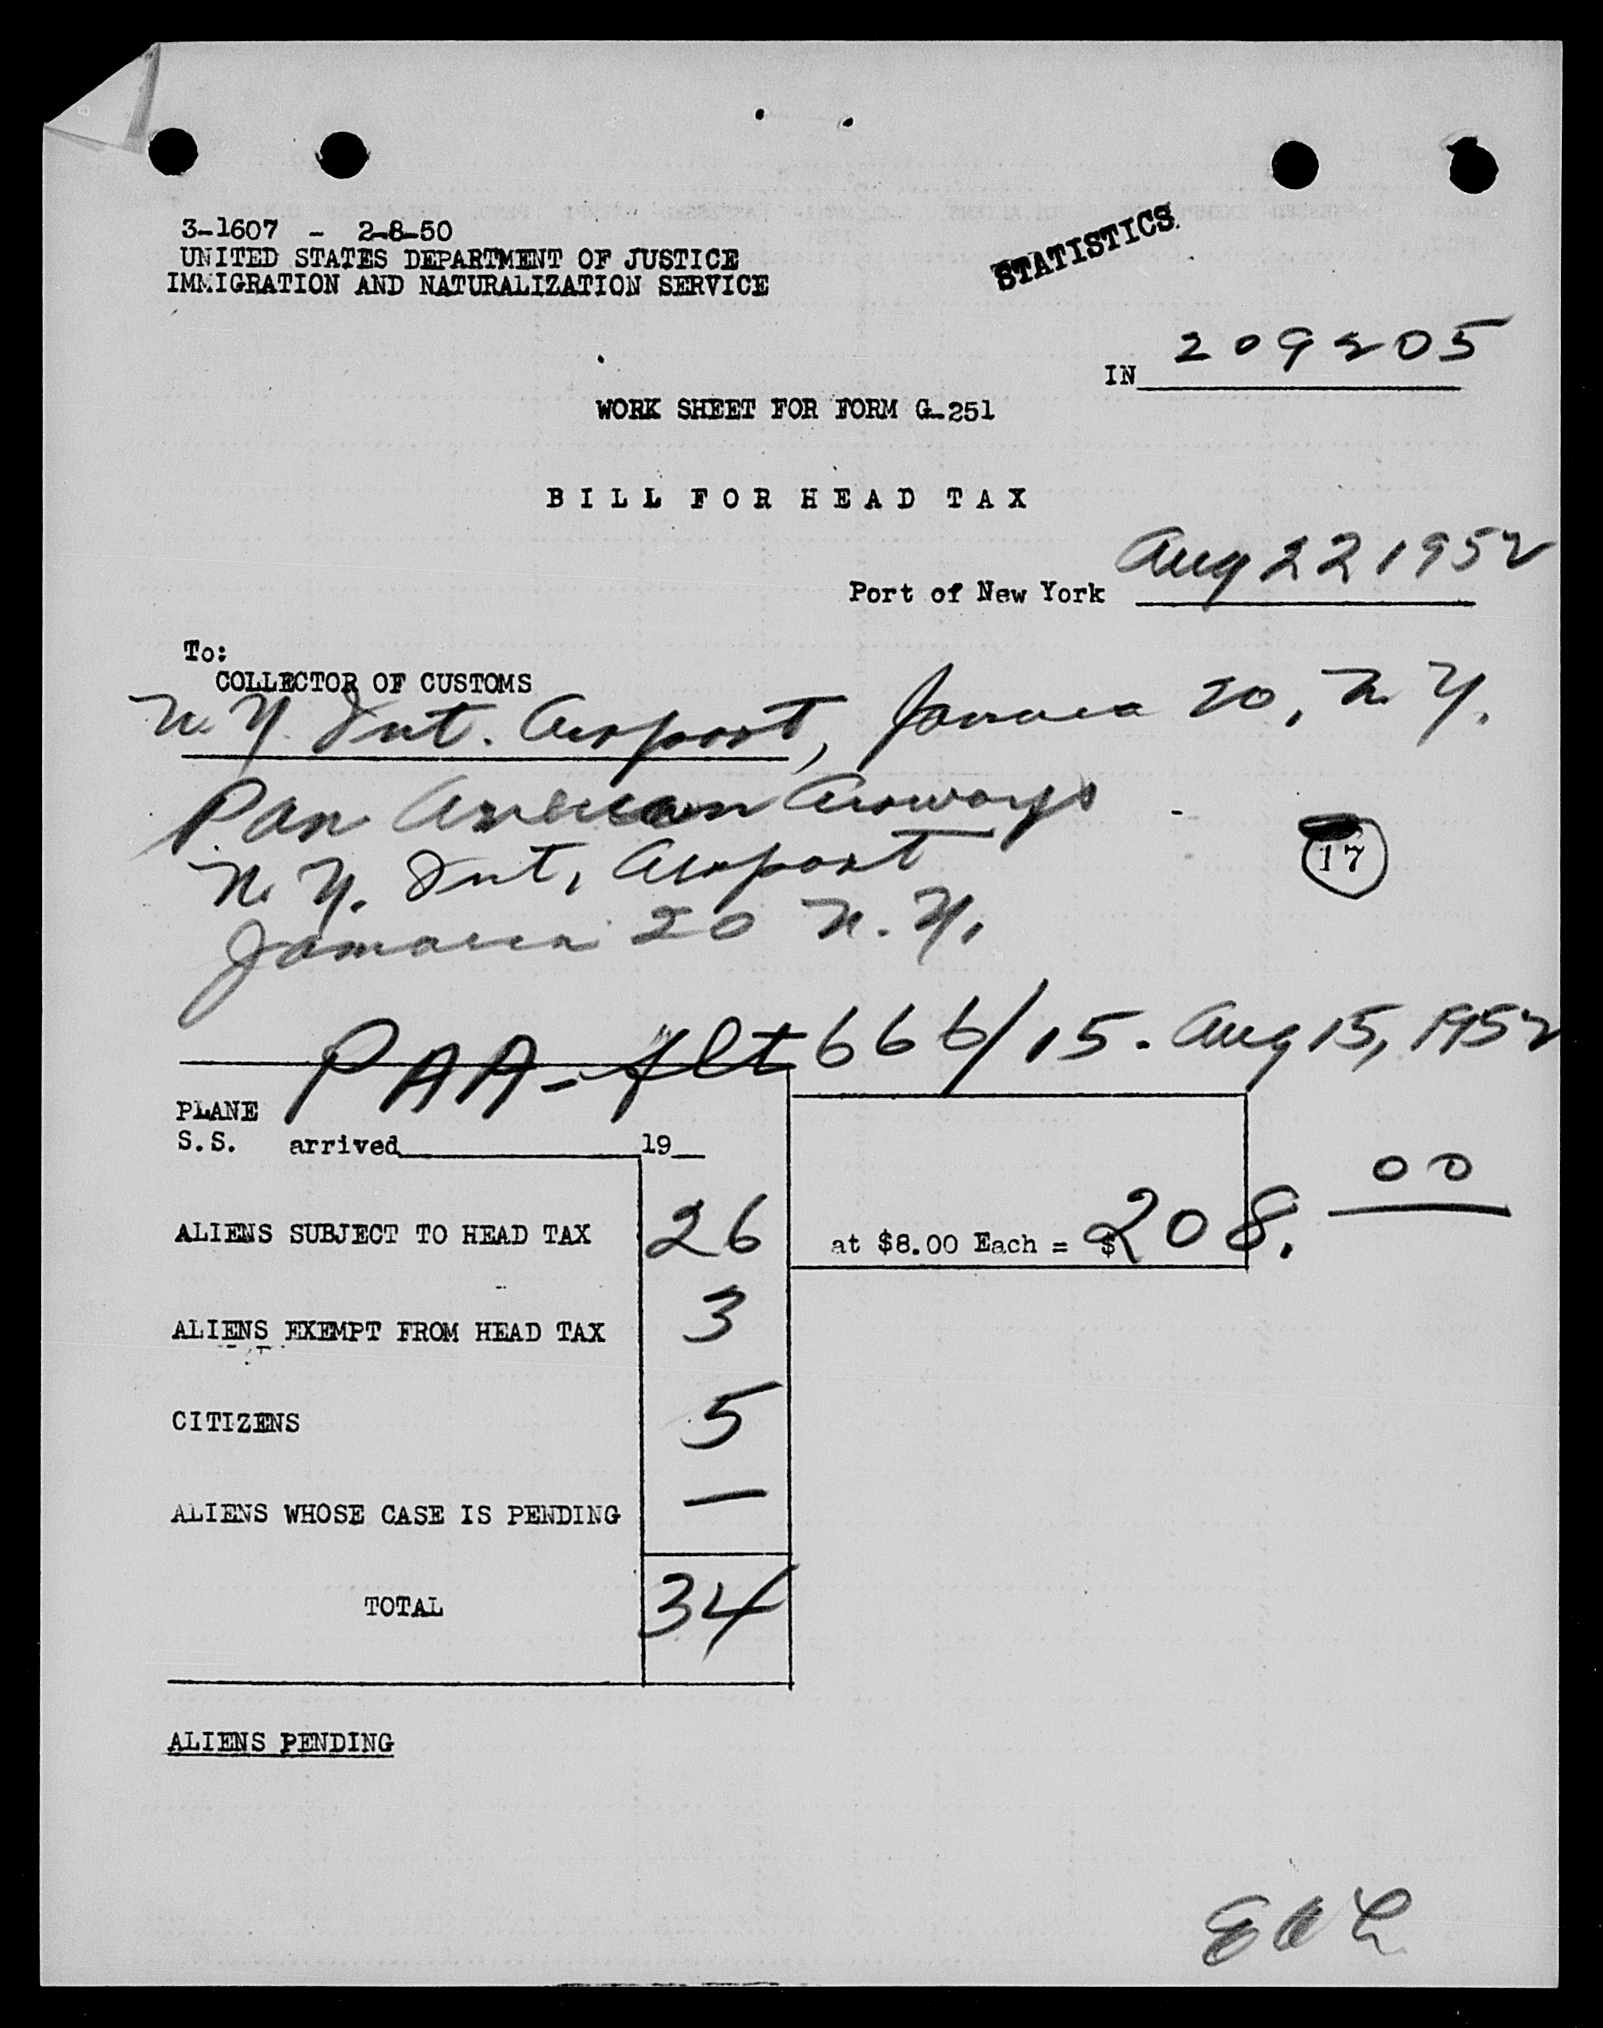 3-1607 - 2-8-50
UNITED STATES DEPARTMENT OF JUSTICE
IMMIGRATION AND NATURALIZATION SERVICE
STATISTICS
IN 209205
WORK SHEET FOR FORM G-251
BILL FOR HEAD TAX
Port of New York Aug 22 1952
To:
COLLECTOR OF CUSTOMS
N.Y. Int. Airport, Jamaica 20, N.Y.
Pan American Airways
17
N.Y. Int. Airport
Jamaica 20 N.Y.
PAA - flt 666/15. Aug 15, 1952
PLANE
S.S. arrived 19
ALIENS SUBJECT TO HEAD TAX 26 at $8.00 Each = $208.00
ALIENS EXEMPT FROM HEAD TAX 3
CITIZENS 5
ALIENS WHOSE CASE IS PENDING —
TOTAL 34
ALIENS PENDING